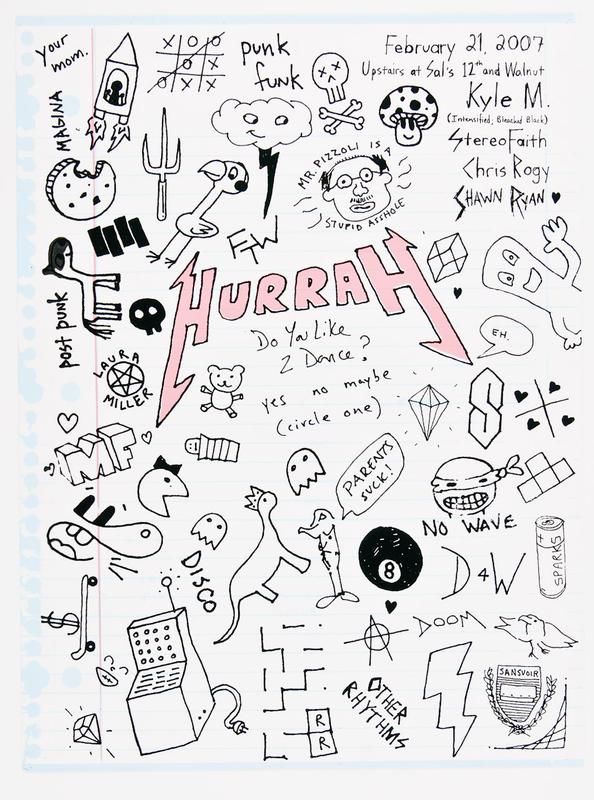 your
mom.
MALINA
X O O
X X O
O X X
punk
funk
February 21, 2007
Upstairs at Sal's 12th and Walnut
Kyle M.
(Intensified, Bleached Black)
StereoFaith
Chris Rogy
SHAWN RYAN
MR. PIZZOLI IS A
STUPID ASSHOLE
FTW
HURRAH
Do You Like
2 Dance?
yes no maybe
(circle one)
EH.
post punk
LAURA
MILLER
MF
PARENTS
SUCK!
NO WAVE
8
D4W
SPARKS
DISCO
$
DOOM
OTHER
RHYTHMS
R
R
SANSVOIR